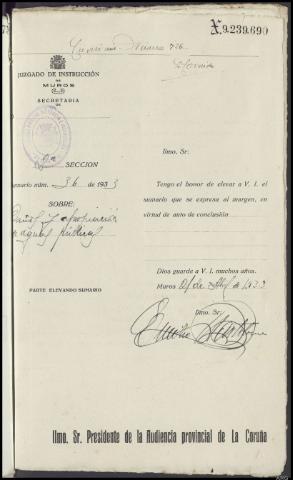 X.9.239.690
JUZGADO DE INSTRUCCIÓN
DE
MUROS
SECRETARÍA
DE
SECCION
Sumario núm. 36 de 1933
SOBRE:
Daños y
de aguas públicas
PARTE ELEVANDO SUMARIO
Ilmo. Sr.
Tengo el honor de elevar a V. I. el
sumario que se expresa al margen, en
virtud de auto de conclusión
Dios guarde a V. I. muchos años.
Muros de de 1933
Ilmo. Sr.
Ilmo. Sr. Presidente de la Audiencia provincial de La Coruña